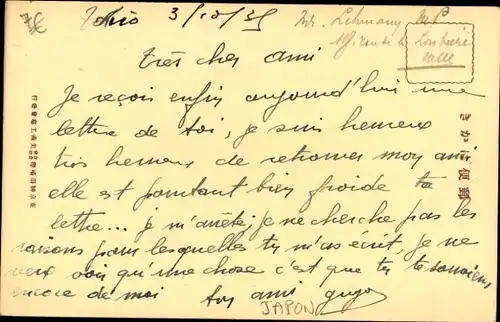 Tokio 3/10/35
Très cher ami
Je reçois enfin aujourd'hui une
lettre de toi, je suis heureux
très heureux de retrouver mon ami
elle est pourtant bien froide ta
lettre... je m'arrête, je ne cherche pas les
raisons pour lesquelles tu m'as écrit, je ne
veux voir qu'une chose c'est que tu te souviens
encore de moi ton ami
JAPON
きかは便郵